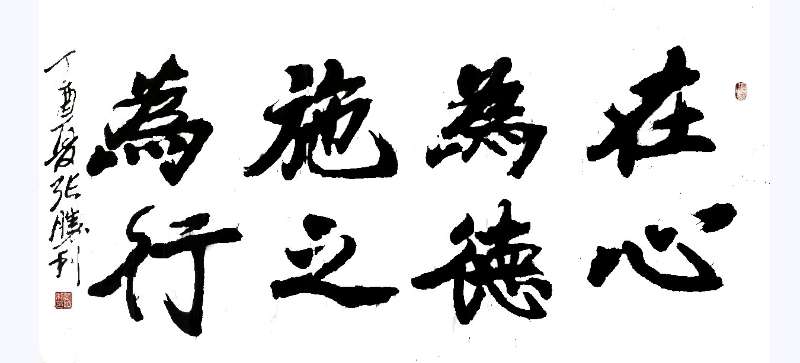 在心
為德
施之
為行
丁酉夏张勝利